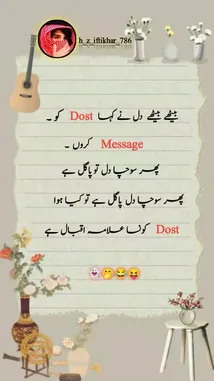 h_z_iftikhar_786
بیٹھے بیٹھے دل نے کہا Dost کو ۔
Message کروں ۔
پھر سوچا دل تو پاگل ہے
پھر سوچا دل پاگل ہے تو کیا ہوا
Dost کونسا علامہ اقبال ہے
👻🤭😂😜